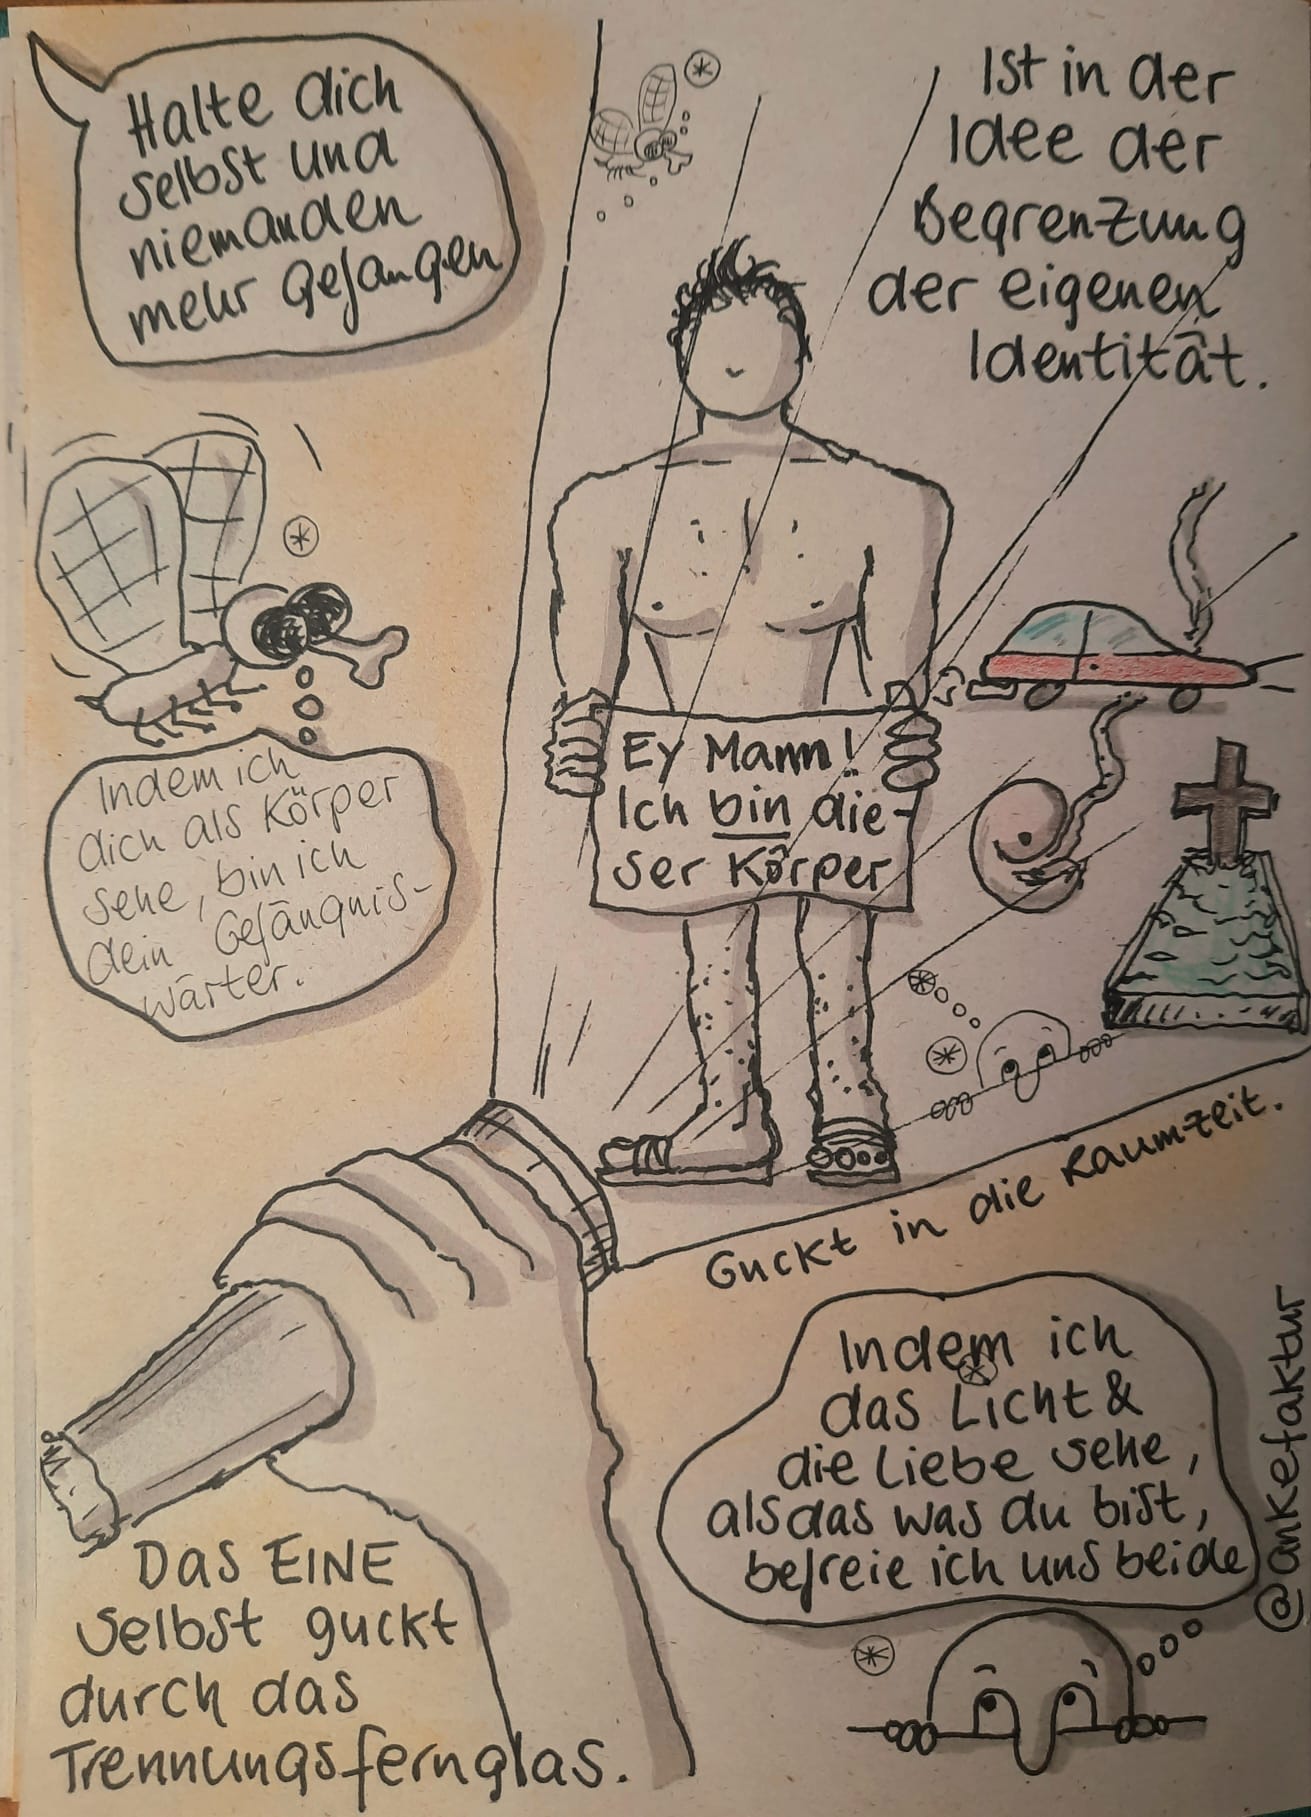 Halte dich
selbst und
niemanden
mehr gefangen
Ist in der
Idee der
Begrenzung
der eigenen
Identität.
Indem ich
dich als Körper
sehe, bin ich
dein Gefängnis-
wärter.
Ey Mann!
Ich bin die-
ser Körper
Guckt in die Raumzeit.
Indem ich
das Licht &
die Liebe sehe,
als das was du bist,
befreie ich uns beide
Das EINE
Selbst guckt
durch das
Trennungsfernglas.
@ankefaktur